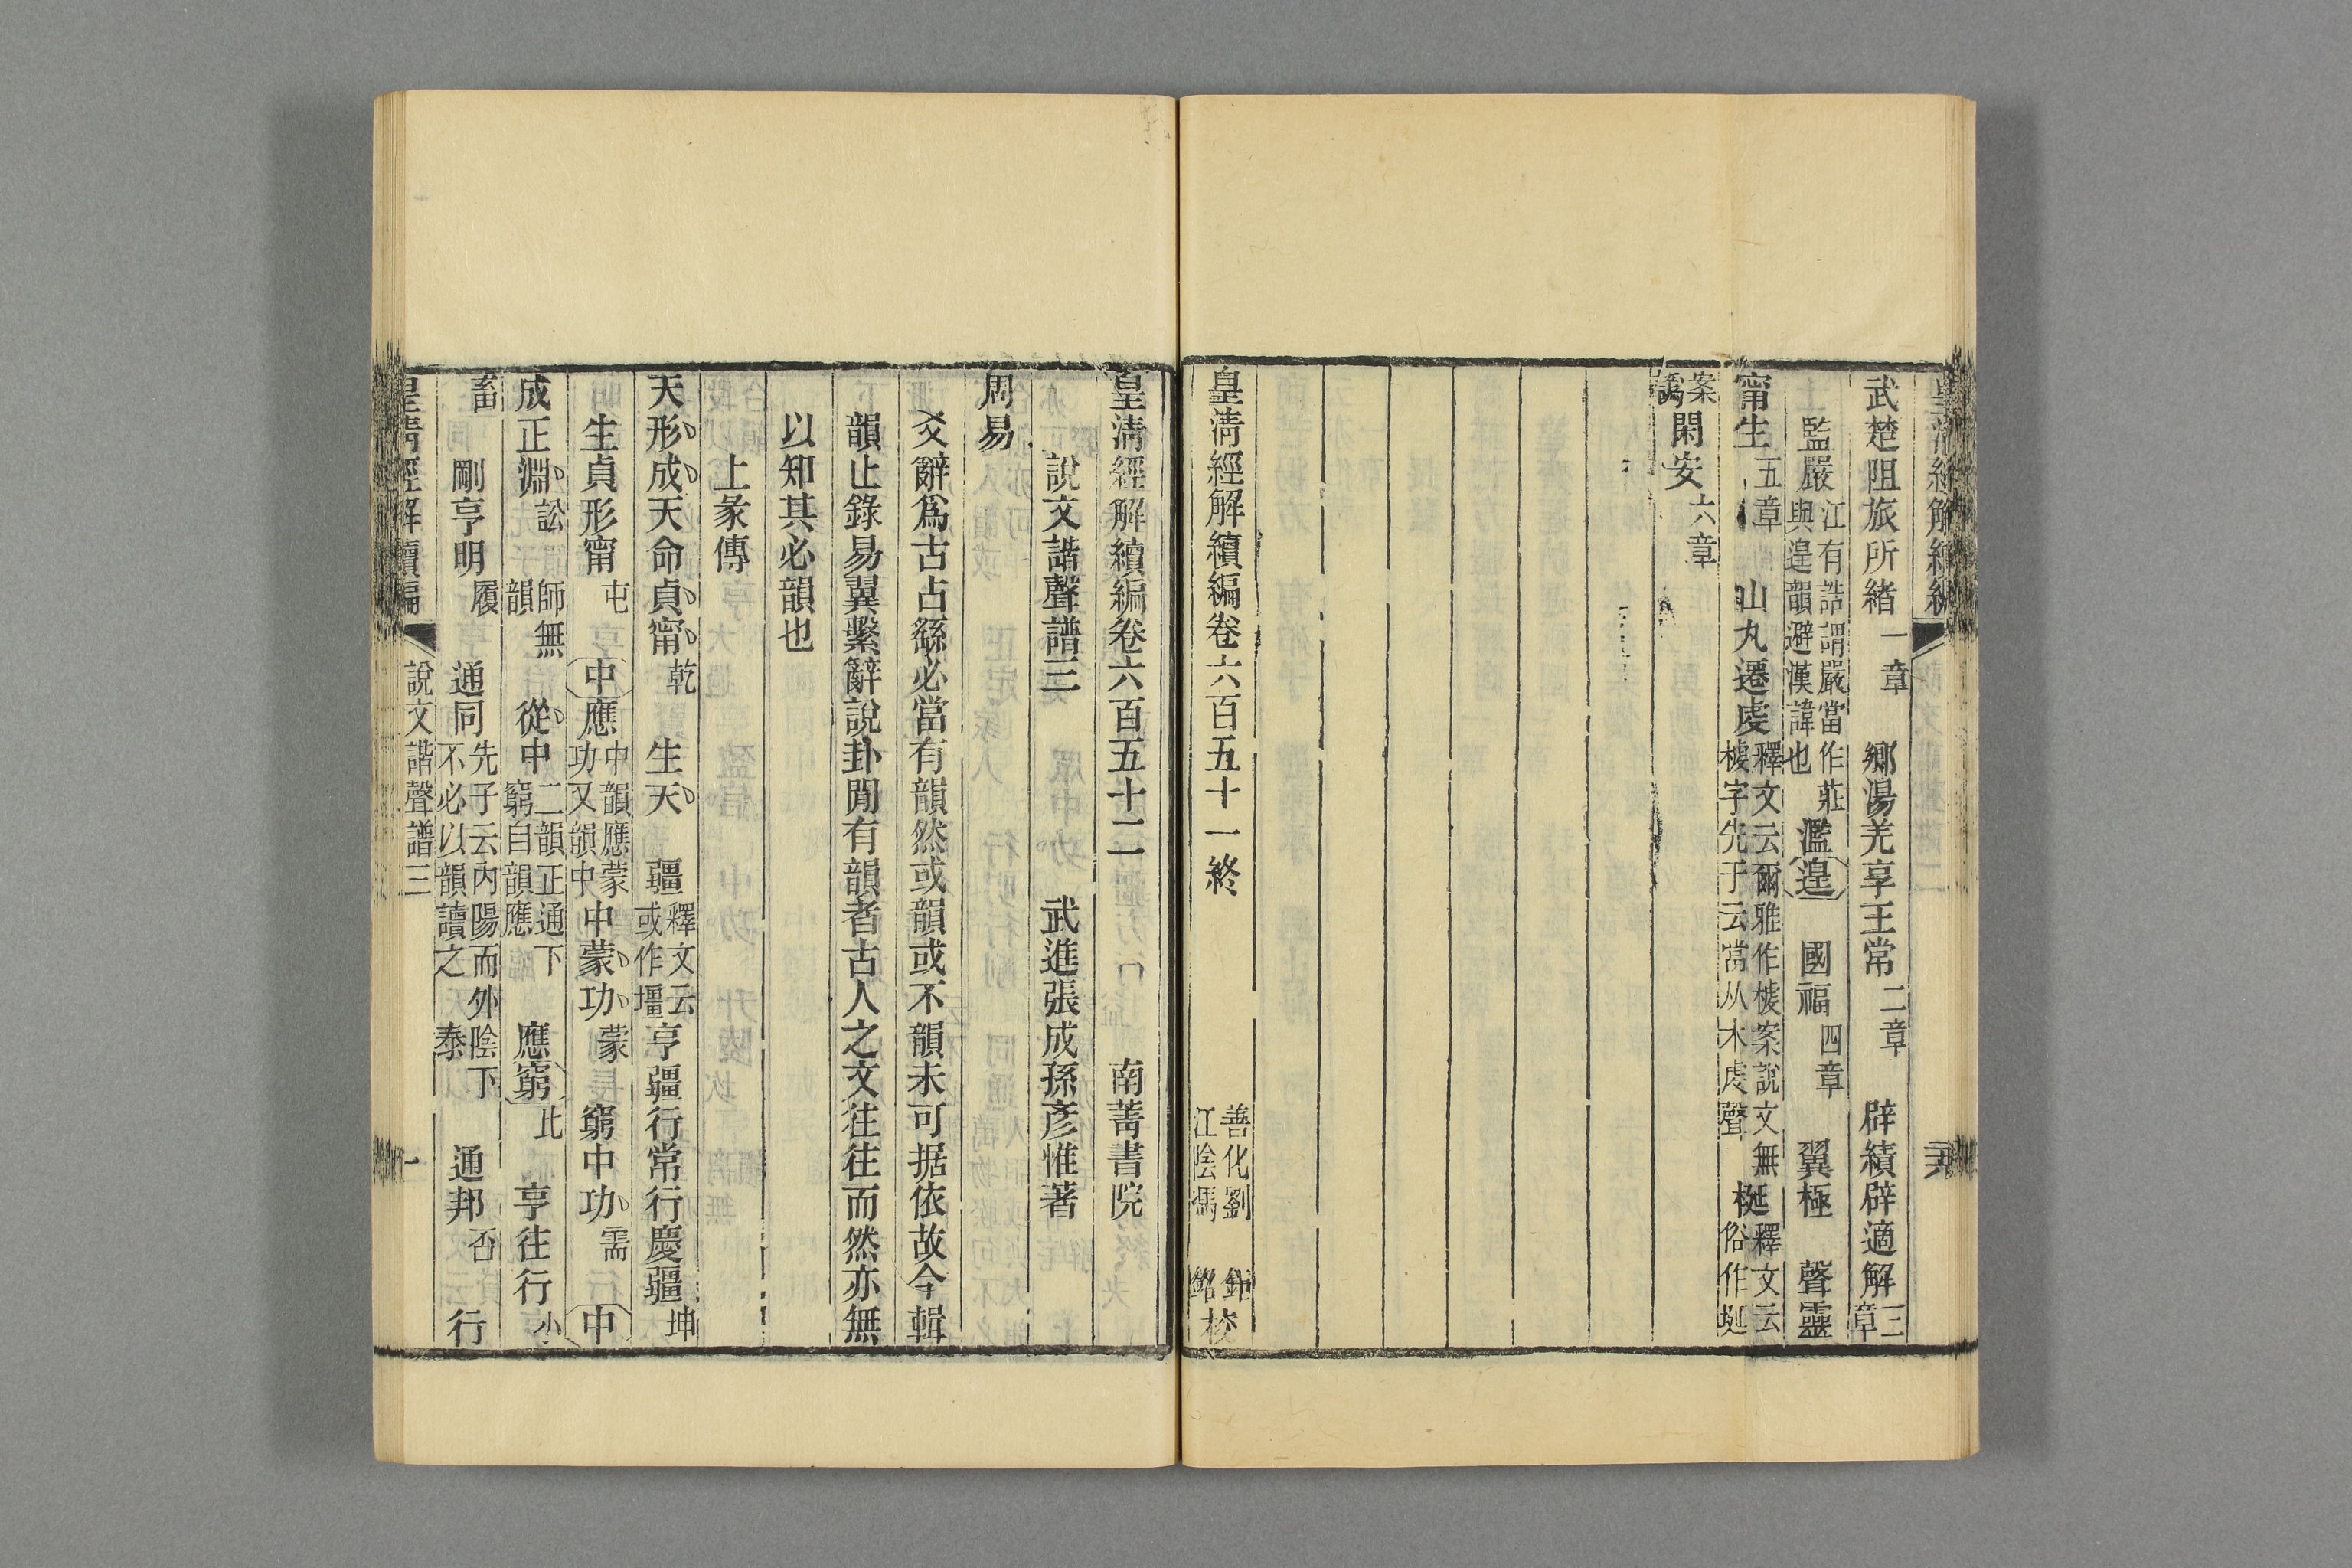 皇清經解續編
武楚阻旅所緒一章　鄉湯羌享王常二章　辟績辟適解三章
監嚴江有誥謂嚴當作莊與遑韻避漢諱也濫遑　國福四章　翼極　聲靈
甯生五章　山丸遷虔釋文云爾雅作榩案說文無榩字先子云當从木虔聲　梴釋文云俗作埏
案譌閑安六章
皇清經解續編卷六百五十一終　善化劉鉅江陰馮銘校
皇清經解續編卷六百五十二　南菁書院
說文諧聲譜三　武進張成孫彥惟著
周易
爻辭爲古占繇必當有韻然或韻或不韻未可据依故今輯
韻止錄易翼繫辭說卦閒有韻者古人之文往往而然亦無
以知其必韻也
上彖傳
天形成天命貞甯乾　生天　疆釋文云或作壃亨疆行常行慶疆坤
生貞形甯屯　中應中韻應蒙功又韻中中蒙功蒙　窮中功需　中
成正淵訟　師無韻　從中二韻正通下窮自韻應　應窮比　亨往行小
畜　剛亨明履　通同先子云內陽而外陰下不必以韻讀之泰　通邦否　行
皇清經解續編　說文諧聲譜三　一